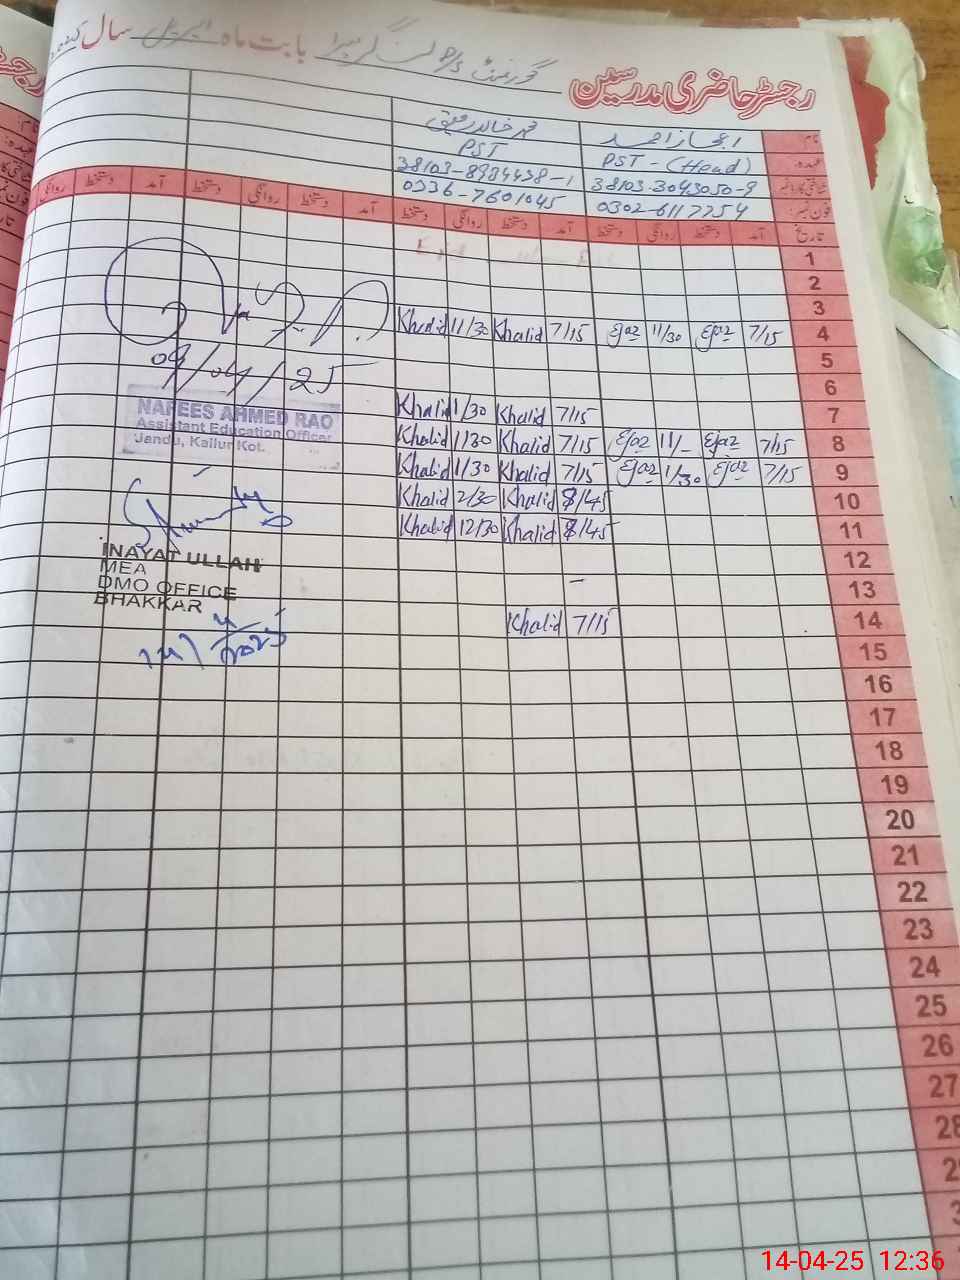 رجسٹر حاضری مدرسین گورنمنٹ P/S بابت ماہ اپریل سال
نام اعجاز احمد محمد خالد رفیق
عہدہ PST - (Head) PST
38103-3043050-9 38103-8934438-1
فون نمبر: 0302-6117754 0336-7601045
تاریخ آمد دستخط روانگی دستخط آمد دستخط روانگی دستخط آمد دستخط روانگی دستخط آمد دستخط روانگی
1
2
3
4 7/15 Ejaz 11/30 Ejaz 7/15 Khalid 11/30 Khalid
5
6
7 7/15 Khalid 1/30 Khalid
8 7/15 Ejaz 11/- Ejaz 7/15 Khalid 1/30 Khalid
9 7/15 Ejaz 1/30 Ejaz 7/15 Khalid 1/30 Khalid
10 8/45 Khalid 2/30 Khalid
11 8/45 Khalid 12/30 Khalid
12
13 –
14 7/15 Khalid
15
16
17
18
19
20
21
22
23
24
25
26
27
28
09/04/25
NAFEES AHMED RAO
Assistant Education Officer
Jandu, Kallur Kot.
INAYAT ULLAH
MEA
DMO OFFICE
BHAKKAR
14-04-25 12:36